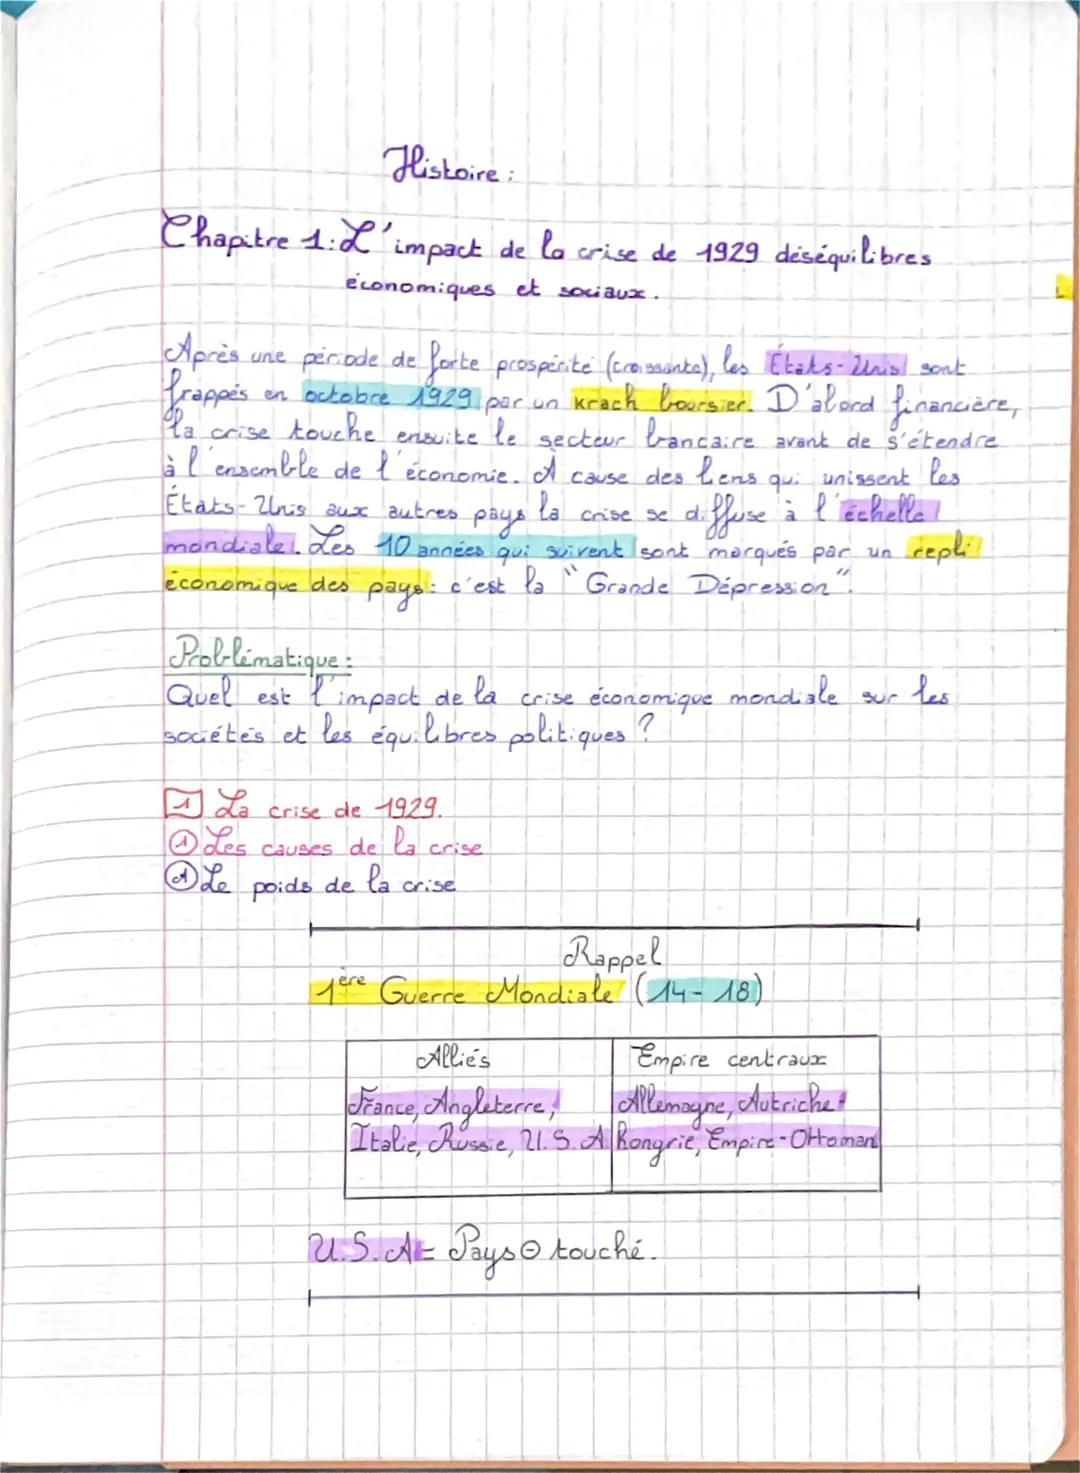 Histoire :
Chapitre 1: L'impact de la crise de 1929 déséquilibres
économiques et sociaux.
Après une période de forte prospérité (croissante), les États-Unis sont
frappés en octobre 1929 par un krach boursier. D'abord financière,
la crise touche ensuite le secteur bancaire avant de s'étendre
à l'ensemble de l'économie. A cause des liens qui unissent les
États-Unis aux autres pays la crise se diffuse à l'échelle
mondiale. Les 10 années qui suivent sont marqués par un repli
économique des pays : c'est la "Grande Dépression".
Problématique :
Quel est l'impact de la crise économique mondiale sur les
sociétés et les équilibres politiques ?
1 La crise de 1929.
1 Les causes de la crise
A Le poids de la crise
Rappel
1ère Guerre Mondiale (14-18)
Alliés
Empire centraux
France, Angleterre,
Italie, Russie, U.S.A
Allemagne, Autriche-
Hongrie, Empire-Ottoman
U.S.A = Pays ⊖ touché.